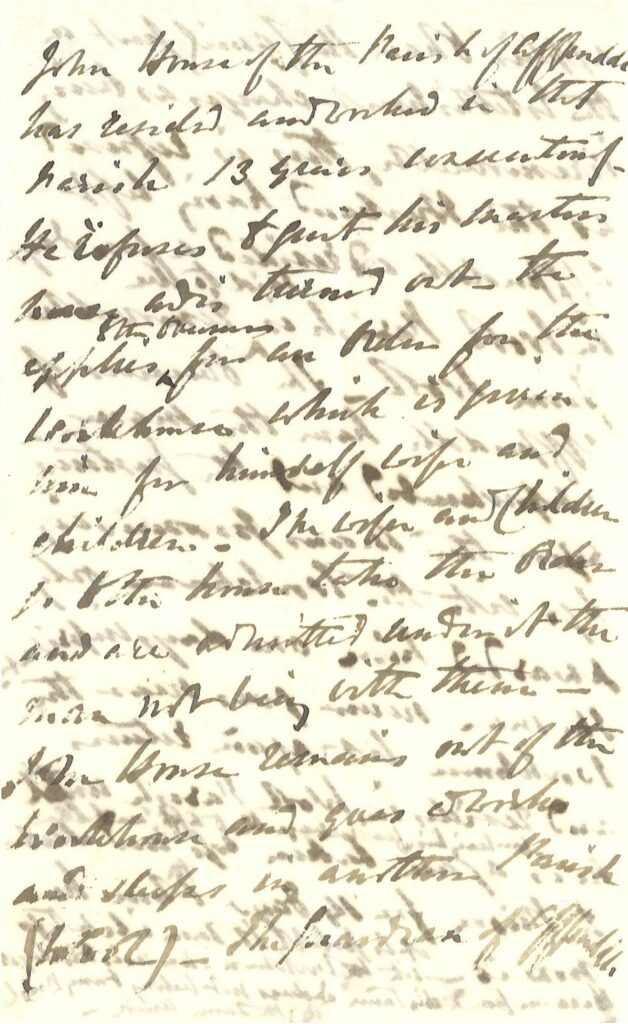 John House of the Parish of Affpuddle
has resided and worked in that
Parish 13 years consecutively
He refuses to quit his Masters
house and is turned out the
the Overseers
applies for an Order for the
Workhouse which is given
him for himself wife and
children. The wife and Children
go to the house take the Order
and are admitted under it the
man not being with them —
John House remains out of the
Workhouse and goes to work
and sleeps in another Parish
The Guardian of Affpuddle